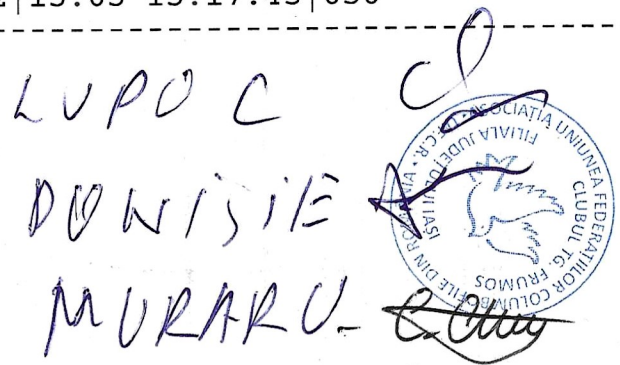 LUPO C
DONISIE
MURARU
ASOCIAȚIA UNIUNEA FEDERAȚIILOR COLUMBOFILE DIN ROMÂNIA • U.F.C.R. •
FILIALA JUDEȚULUI IAȘI
CLUBUL TG. FRUMOS